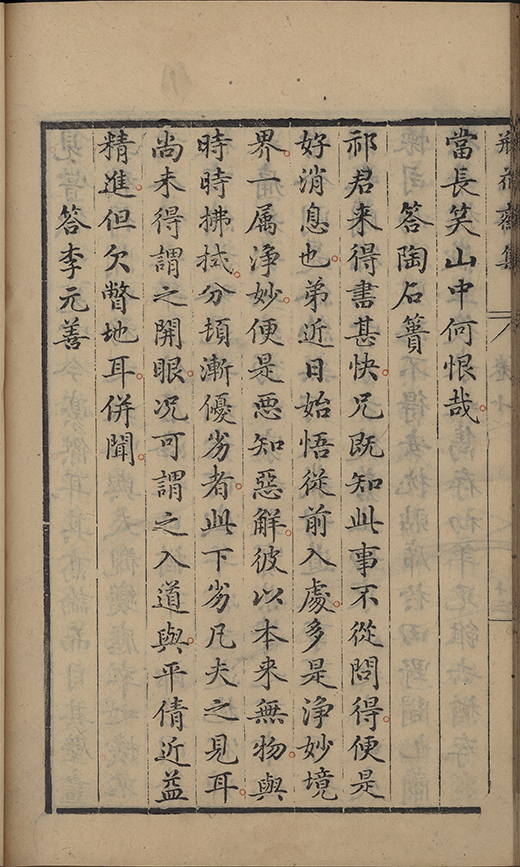 瓶花齋集
當長笑山中何恨哉
答陶石簣
祁君来得書甚快兄既知此事不從問得便是
好消息也弟近日始悟從前入處多是淨妙境
界一属淨妙便是惡知惡解彼以本来無物與
時時拂拭分頓漸優劣者此下劣凡夫之見耳
尚未得謂之開眼况可謂之入道與平倩近益
精進但欠瞥地耳併聞
答李元善